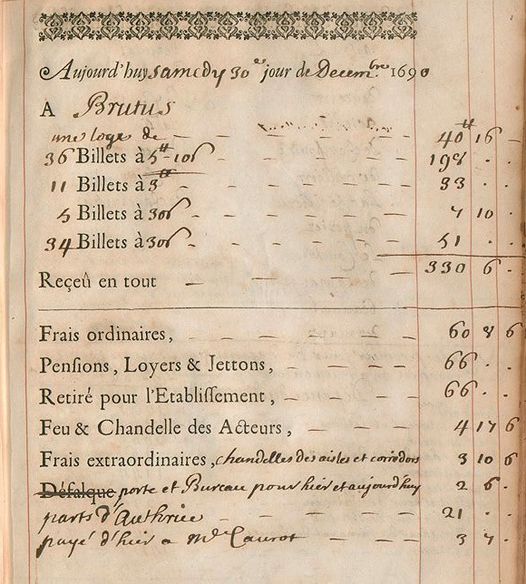 Aujourd'huy samedy 30e jour de Decembre 1690
A Brutus
une loge de — — — 40 ₶ 16 —
36 Billets à 5₶ 10ſ — — — 198 . .
11 Billets à 3₶ — — — — 33 . .
5 Billets à 30ſ — — — — 7 10 .
34 Billets à 30ſ — — — — 51 . .
Reçeû en tout — — — — 330 6 .
Frais ordinaires, — — — — 60 8 6
Pensions, Loyers & Jettons, — — — 66 . .
Retiré pour l'Etablissement, — — — 66 . .
Feu & Chandelle des Acteurs, — — — 4 17 6
Frais extraordinaires, chandelles des aisles et corridors 3 10 6
Défalque porte et Bureau pour hier et aujourd huy 2 6 .
parts d'Authrice — — — — 21 . .
payé d'hier a Mr — — — 3 7 .